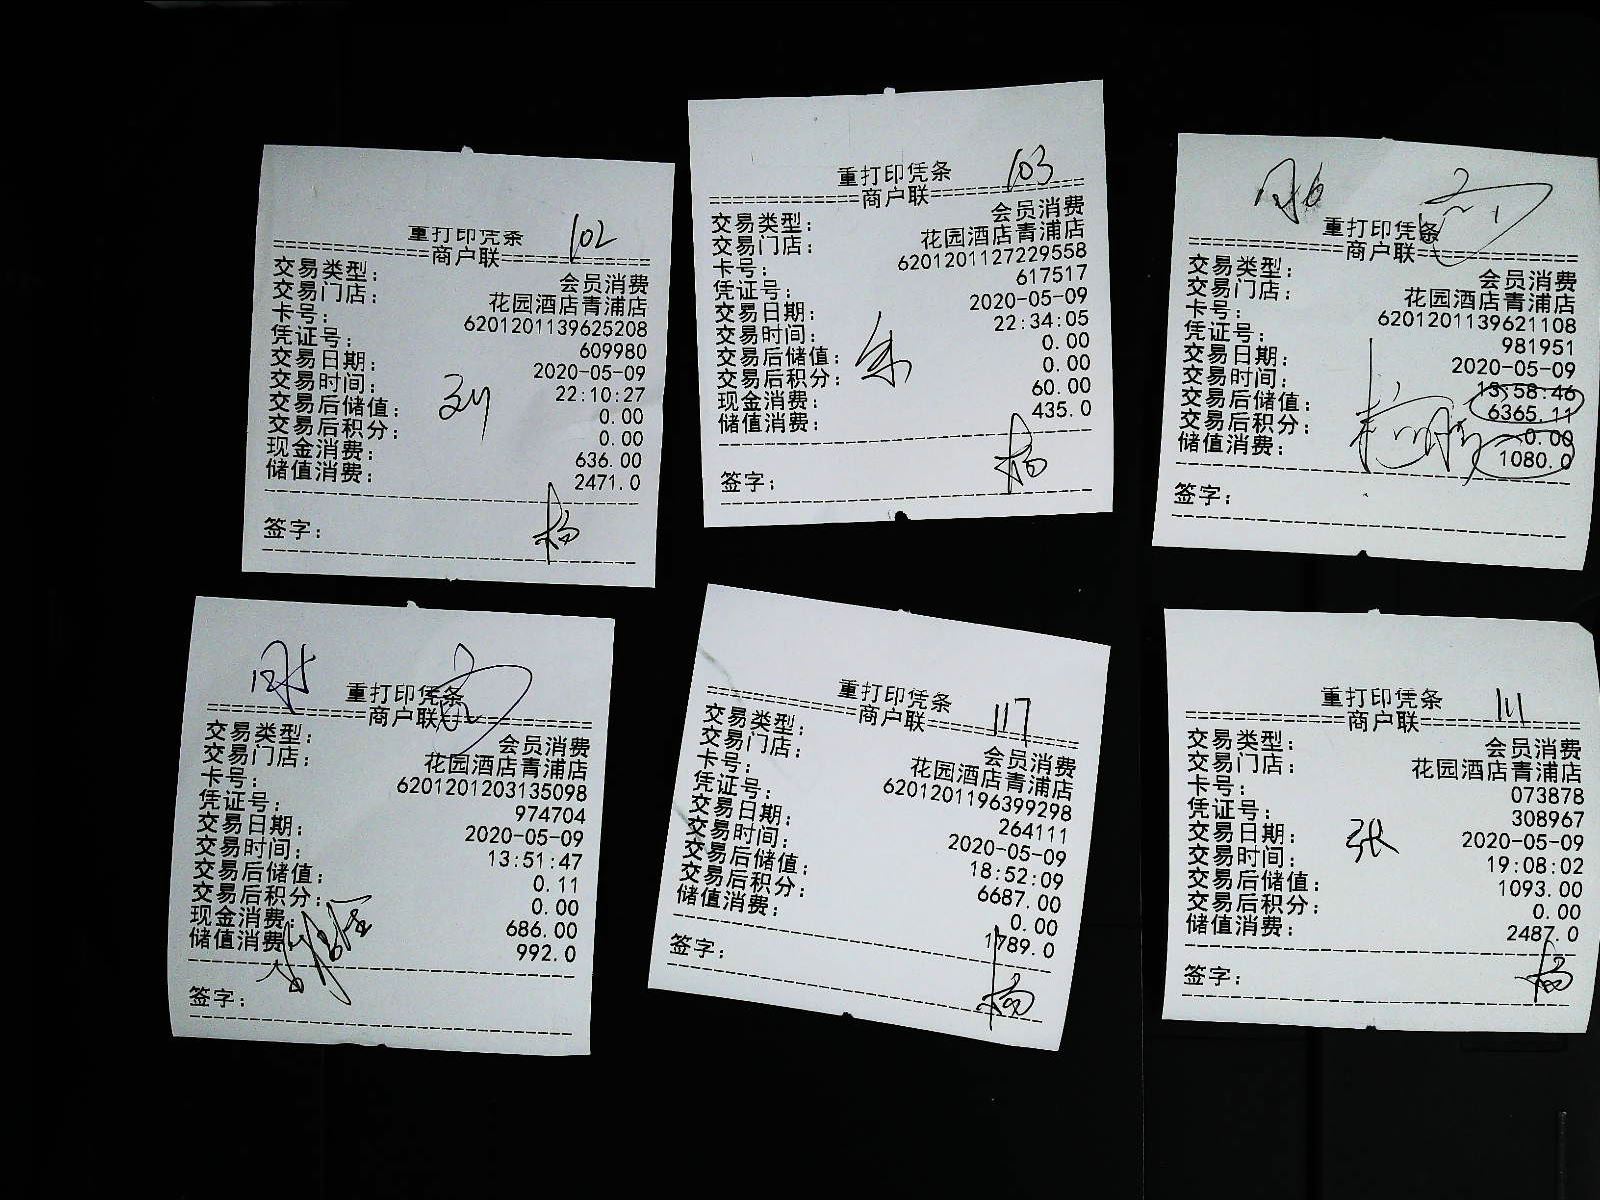 重打印凭条 102
============商户联============
交易类型: 会员消费
交易门店: 花园酒店青浦店
卡号: 6201201139625208
凭证号: 609980
交易日期: 2020-05-09
交易时间: 22:10:27
交易后储值: 0.00
交易后积分: 0.00
现金消费: 636.00
储值消费: 2471.0
签字: 杨
重打印凭条 103
============商户联============
交易类型: 会员消费
交易门店: 花园酒店青浦店
卡号: 6201201127229558
凭证号: 617517
交易日期: 2020-05-09
交易时间: 22:34:05
交易后储值: 0.00
交易后积分: 朱 0.00
现金消费: 60.00
储值消费: 435.0
签字: 杨
重打印凭条
============商户联============
交易类型: 会员消费
交易门店: 花园酒店青浦店
卡号: 6201201139621108
凭证号: 981951
交易日期: 2020-05-09
交易时间: 13:58:46
交易后储值: 6365.11
交易后积分: 0.00
储值消费: 1080.0
签字:
重打印凭条
============商户联============
交易类型: 会员消费
交易门店: 花园酒店青浦店
卡号: 6201201203135098
凭证号: 974704
交易日期: 2020-05-09
交易时间: 13:51:47
交易后储值: 0.11
交易后积分: 0.00
现金消费: 686.00
储值消费: 992.0
签字:
重打印凭条 117
============商户联============
交易类型: 会员消费
交易门店: 花园酒店青浦店
卡号: 6201201196399298
凭证号: 264111
交易日期: 2020-05-09
交易时间: 18:52:09
交易后储值: 6687.00
交易后积分: 0.00
储值消费: 1789.0
签字: 杨
重打印凭条 111
============商户联============
交易类型: 会员消费
交易门店: 花园酒店青浦店
卡号: 073878
凭证号: 308967
交易日期: 张 2020-05-09
交易时间: 19:08:02
交易后储值: 1093.00
交易后积分: 0.00
储值消费: 2487.0
签字: 杨